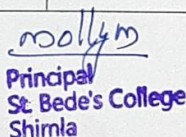 Mollym
Principal
St. Bede's College
Shimla